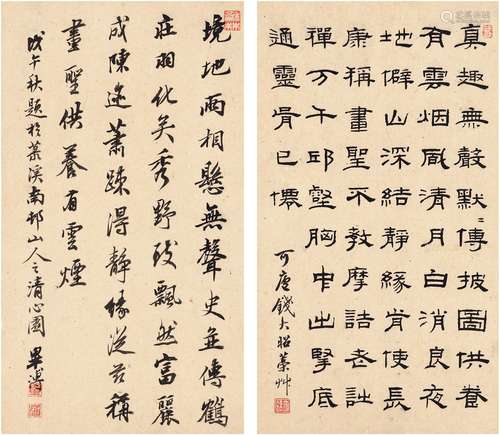 真趣無聲默〻傳披圖供養
有雲烟風清月白消良夜
地僻山深結靜緣肯使長
康稱畫聖不教摩詰老
禪万千邱壑胸中出掔底
通靈骨已僊
可廬錢大昭稾艸
境地兩相懸無聲史並傳鶴
莊羽化矣秀野致飄然富麗
成陳迹蕭疎得靜緣從茲稱
畫聖供養有雲煙
戊午秋題於葉溪南邨山人之清心園畢